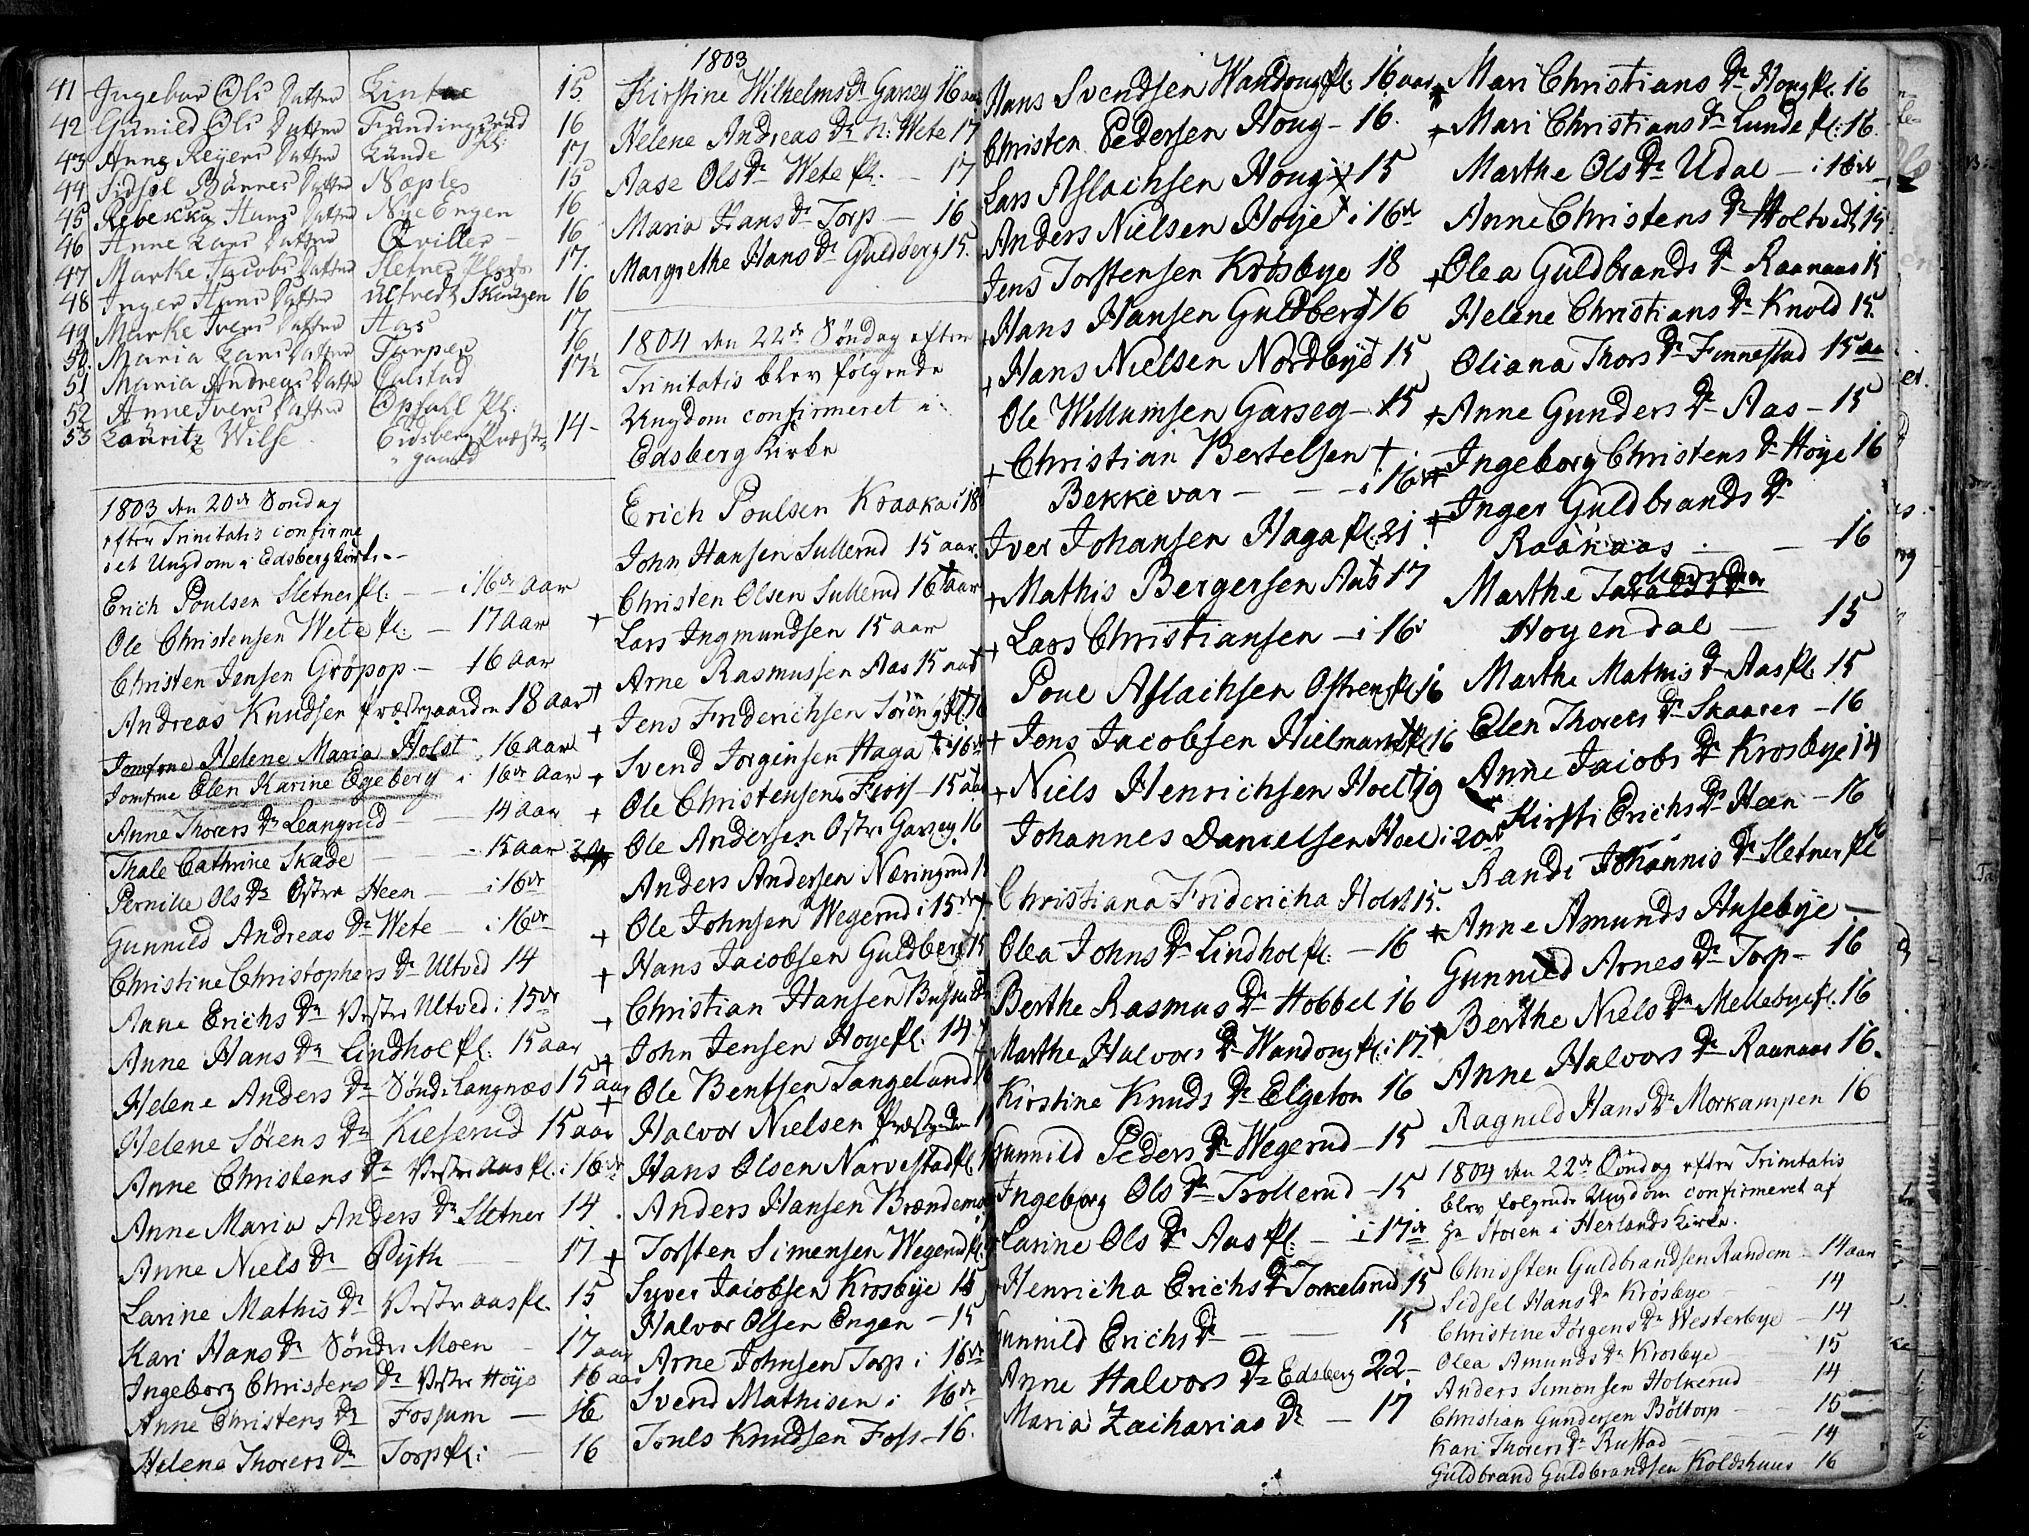 41 Ingebor Ols Datter 15
42 Gunild Ols Datter Fundingsrud Pl: 16
43 Anne Reyers Datter Lunde 17
44 Sidsel Bännes Datter Næples 15
45 Rebekka Hans Datter Nye Engen 16
46 Anne Lars Datter Qviller 16
47 Marke Jacobs Datter Sletner Plads 17
48 Inger Hans Datter Ultvedt Skougen 16
49 Marke Ivers Datter Aas 17
50. Maria Lars Datter Torper 16
51 Maria Andreas Datter Calstad 17½
52 Anne Ivers Datter Opsall Pl.
53 Lauritz Wilse Eidsberg Præste-gaard 14-
1803 den 20de Søndag
efter Trinitatis confirme
ret Ungdom i Edsberg Kirke.-
Erich Poulsen Sletner pl: - i 16de aar
Ole Christensen Wete pl: - 17 aar
Christen Jensen Gröpop - 16 aar
Andreas Knudsen Præstegaarden 18 aar
Jomfrue Helene Maria Holst 16 aar
Jomfrue Elen Karine Egeberg i 16de aar
Anne Thorers Dr Leangrud - 14 aar
Thale Cathrine Skade - 15 aar
Pernille Ols Dr Østre Heen - i 16de
Gunnild Andreas Dr Wete - i 16de
Christine Christophers Dr Ultved 14
Anne Erichs Dr Vestre Ultved i 15de
Anne Hans Dr Lindhol pl: 15 aar
Helene Anders Dr Sønd: Langnæs 15 aar
Helene Sørens Dr Kieserud 15 aar
Anne Christens Dr Vestre Aas pl: i 16de
Anne Maria Anders Dr Sletner 14
Anne Niels Dr Byth 17
Larine Mathis Dr Vestre Aas pl. 15
Kari Hans Dr Søndre Moen - 17 aar
Ingeborg Christens Dr Vestre Høye 16 aar
Anne Christens Dr Fossum - 16
Helena Thorers Dr Torp pl: - 16
1803
Kirstine Wilhelms Dr Garseg 16 aar
Helene Andreas Dr N: Wete 17
Aase Ols Dr Wete pl. - 17
Maria Hans Dr Torp - 16
Margrethe Hans Dr Guldberg 15.
1804 den 22de Søndag efter
Trinitatis blev følgende
Ungdom confirmeret i
Edsberg Kirke
Erich Poulsen Kraaka i 18
John Hansen Sullerud 15 aar
Christen Olsen Sullerud 16 aar
+ Lars Ingmundsen 15 aar
Arne Rasmussen Aas 15 aar
+ Jens Friderichsen Söreng pl: 16
+ Svend Jorgensen Haga i 16de
+ Ole Christensen Fiös - 15 aar
+ Ole Andersen Ostre Garseg 16
Anders Andersen Næringrud
Ole Johnsen Wegerud i 15de
+ Hans Jacobsen Guldberg 15
+ Christian Hansen
+ John Jensen Hoye pl: 14
+ Ole Bentsen Tangelund
+ Halvor Nielsen Præstgaarden
Hans Olsen Narvestad pl.
Anders Hansen Brændemoe
+ Torsten Simensen Wegerud pl.
Syver Jacobsen Krosbye 15
Halvor Olsen Engen - 15
Arne Johnsen Torp i 16de
Svend Mathisen i 16de
Jouls Knudsen Foss - 16.
Hans Svendsen Wandoug pl: 16 aar
Christen Pedersen Houg - 16.
Lars Aslachsen Houg 15
Anders Nielsen Hoye i 16de
Jens Torstensen Krösbye 18
+ Hans Hansen Guldberg 16
+ Hans Nielsen Nordbye 15
Ole Willumsen Garseg - 15
+ Christian Bertelsen
Bekkevar - - i 16de
Iver Johansen Haga pl. 21
+ Mathis Bergersen Aas 17
+ Lars Christiansen - i 16de
Poul Aslachsen Ostreng pl. 16
+ Jens Jacobsen Hielmark pl 16
+ Niels Henrichsen Hoel 19
Johannes Danielsen Hoel i 20de
Christiana Fridericha Holst 15.
Olea Johns Dr Lindhol pl: - 16
Berthe Rasmus Dr Hobbel 16
Marthe Halvors Dr Wandoug pl. i 17.
Kirstine Knuds Dr Elgeton 16
Gunnild Peders Dr Wegerud - 15
Ingeborg Ols Dr Trollerud - 15
Larine Ols Dr Aas pl: - i 17de
Henricha Erichs Dr Torkelsrud 15
Gunnild Erichs Dr - - 15
Anne Halvors Dr Edsberg 22.-
Maria Zacharias Dr - 17
Mari Christians Dr Houg pl. 16
+ Mari Christians Dr Lunde pl: 16.
Marthe Ols Dr Udal - i 16de
Anne Christens Dr Holtvedt 15
+ Olea Guldbrands Dr Raanaas 15
Helene Christians Dr Knold 15.
Oliana Thors Dr Finnestad 15 aar
+ Anne Gunders Dr Aas - 15
Ingeborg Christens Dr Høye 16
+ Inger Guldbrands Dr
Raanaas - 16
Marthe
Høyendal - 15
Marthe Mathis Dr Aas pl. 15
Elen Thorers Dr Skaarer - 16
Anne Jacobs Dr Krosbye 14
Kirsti Erichs Dr Heen - 16
Randi Johannis Dr Sletner pl 16
+ Anne Amunds Husebye -
Gunnild Arnes Dr Torp - 16
Berthe Niels Dr Mellebye pl. 16
Anne Halvors Dr Raanaas 16.
Ragnild Hans Dr Morkampen 16
1804 den 22de Söndag efter Trinitatis
blev følgende Ungdom confirmeret af
Hr Storen i Herlands Kirke.
Christen Guldbrandsen Randem - 14 aar
Sidsel Hans Dr Krösbye - 14
Christine Jörgens Dr Westerbye - 14
Olea Amunds Dr Krosbye - 15
Anders Simonsen Holkerud 14
Christian Gundersen Böltorp - 15
Kari Thorers Dr Rustad - 14
Guldbrand Guldbrandsen Koldshuus 16